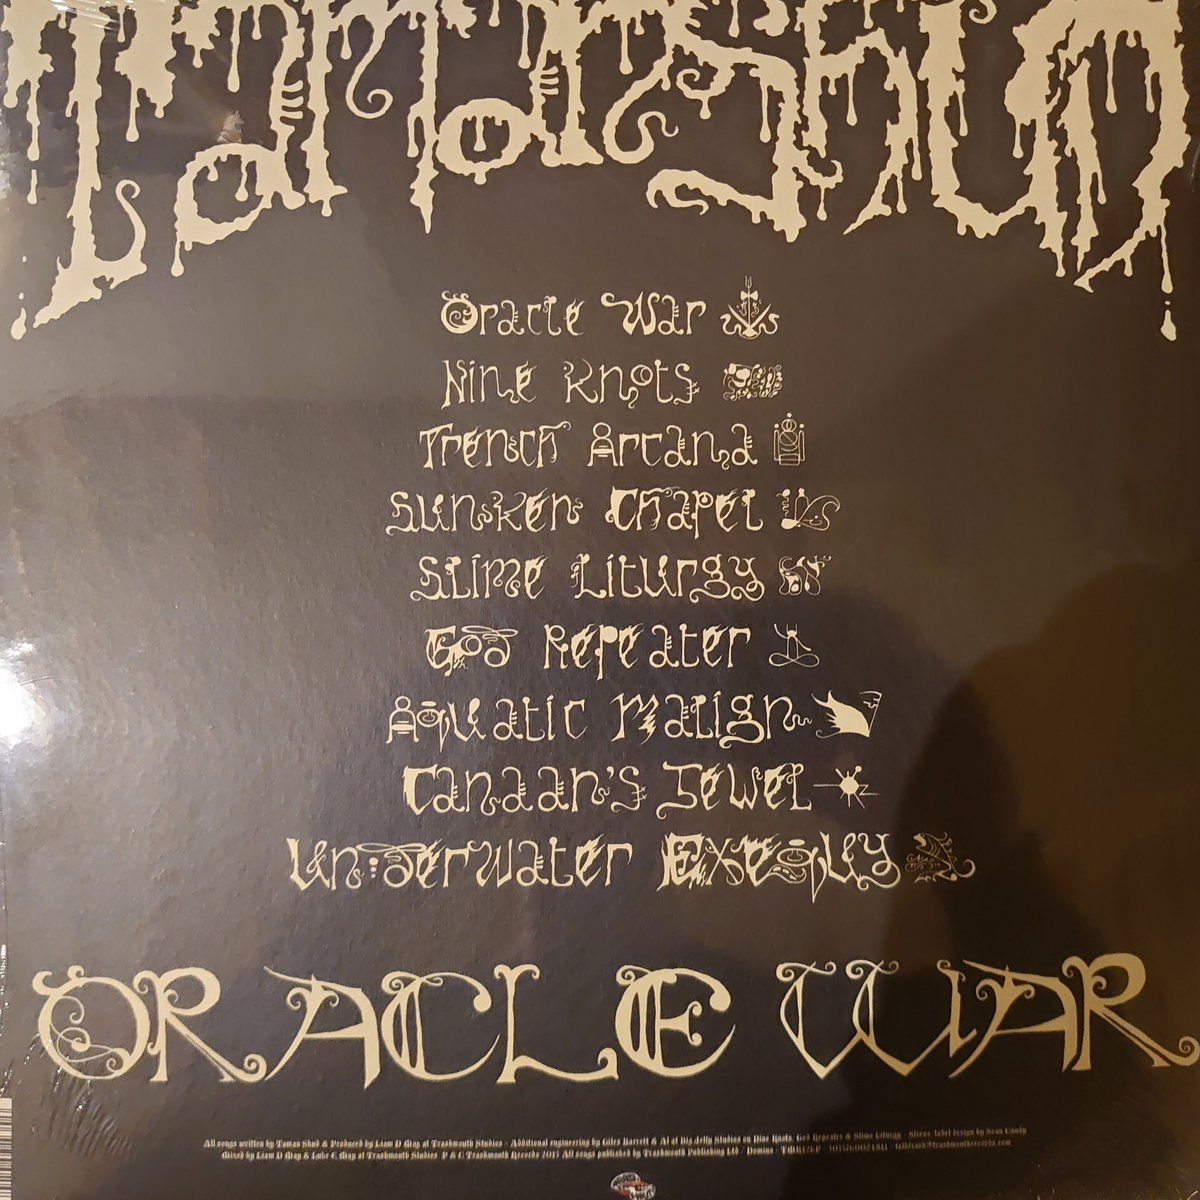 Taman Shud
Oracle War
Nine Knots
Trench Arcana
Sunken Chapel
Slime Liturgy
God Repeater
Aquatic Malign
Canaan's Jewel
Underwater Exequy
ORACLE WAR
All songs written by Taman Shud & Produced by Liam D May at Trashmouth Studios - Additional engineering by Giles Barrett & Al at Big Jelly Studios on Nine Knots, God Repeater & Slime Liturgy - Sleeve, label design by Sean Condy
Mixed by Liam D May & Luke C May at Trashmouth Studios P & C Trashmouth Records 2015 All songs published by Trashmouth Publishing Ltd / Domino -